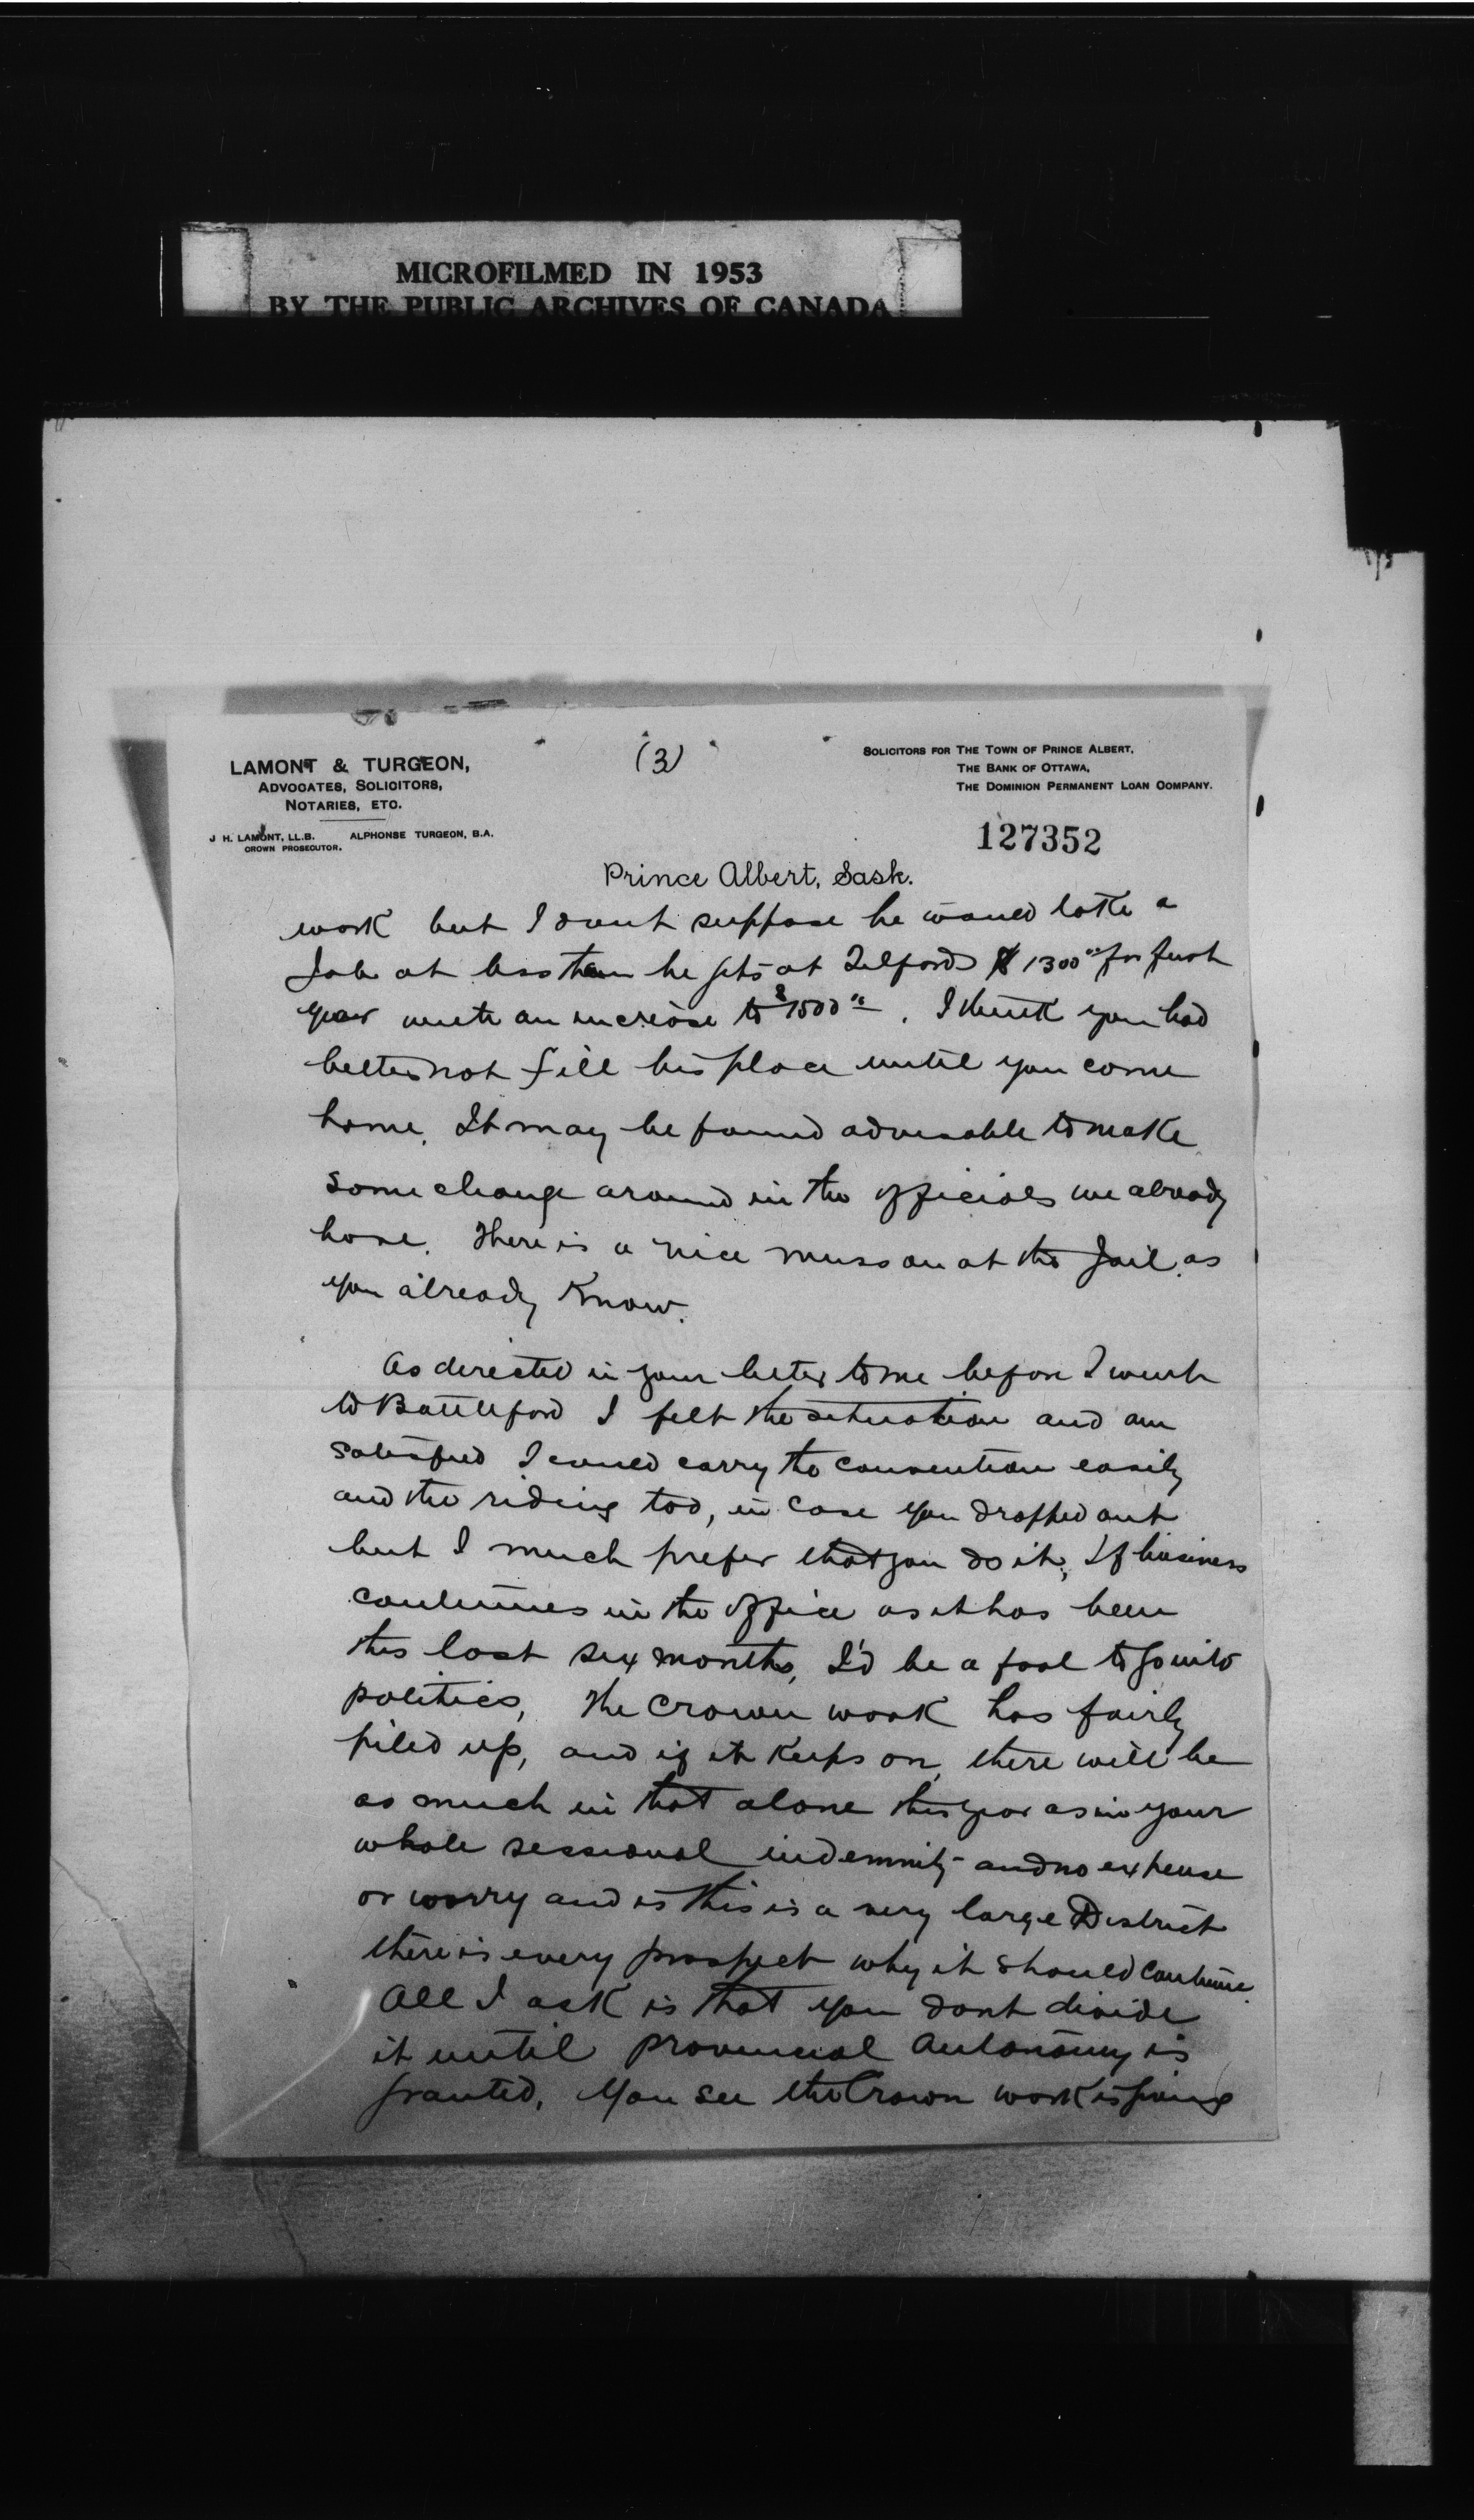 MICROFILMED IN 1953
BY THE PUBLIC ARCHIVES OF CANADA
(3)
LAMONT & TURGEON,
ADVOCATES, SOLICITORS,
NOTARIES, ETC.
J H. LAMONT, LL.B. ALPHONSE TURGEON, B.A.
CROWN PROSECUTOR.
SOLICITORS FOR THE TOWN OF PRINCE ALBERT,
THE BANK OF OTTAWA,
THE DOMINION PERMANENT LOAN COMPANY.
127352
Prince Albert, Sask.
work but I dont suppose he would take a
Job at less than he gets at Telfords $1300⁰⁰ for first
year with an increase to $1500⁰⁰. I think you had
better not fill his place until you come
home. It may be found advisable to make
some change around in the officials we already
have. There is a nice muss on at the Jail. as
you already know.
As directed in your letter to me before I went
to Battleford I felt the situation and am
satisfied I could carry the convention easily
and the riding too, in case you dropped out
but I much prefer that you do it, If business
continues in the office as it has been
this last six months, I'd be a fool to go into
politics, The Crown work has fairly
piled up, and if it keeps on, there will be
as much in that alone this year as in your
whole sessional indemnity and no expense
or worry and as this is a very large District
there is every prospect why it should continue.
All I ask is that you dont divide
it until provincial autonomy is
granted, You see the Crown work is giving